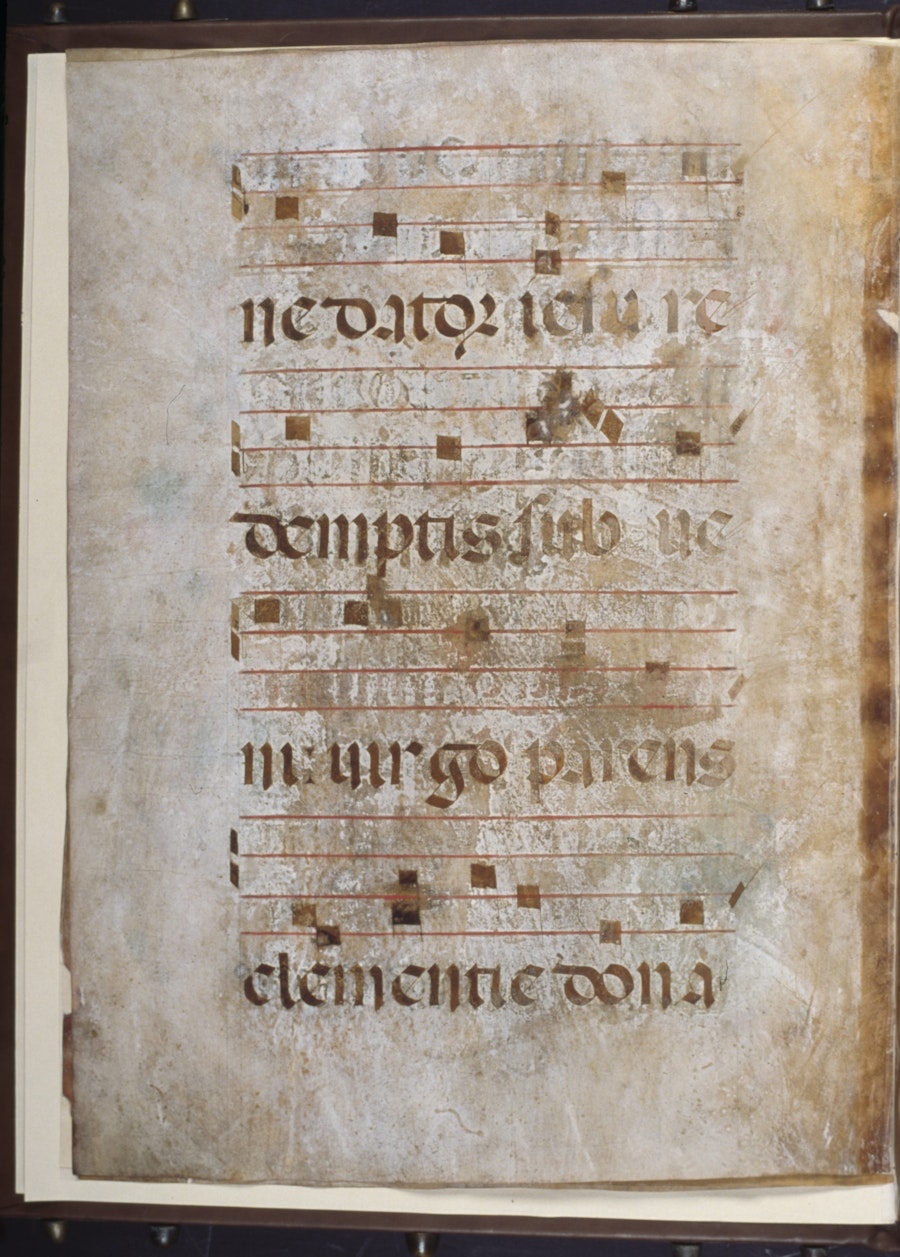 ne dator iesu re
demptis sub ue
ni: uirgo parens
clementie dona